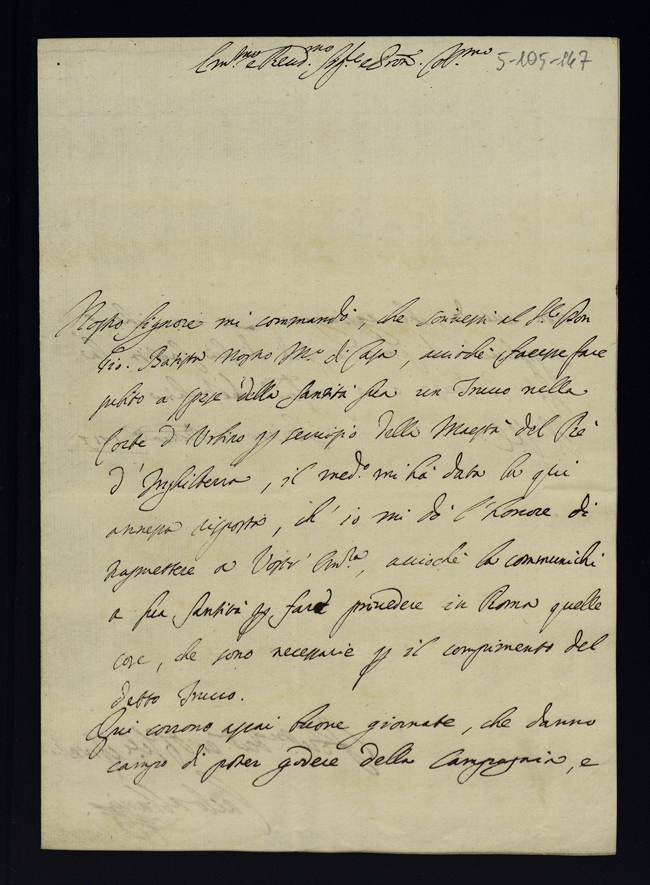 Em.mo e Rev.mo Sig.re e Pron. Col.mo 5-105-147
Nostro Signore mi commandò, che scrivessi al S.r Don
Gio. Batista nostro M.ro di Casa, acciochè facesse fare
subito a spese della Santità sua un Trucco nella
Corte d'Urbino per servizio della Maestà del Rè
d'Inghilterra, il med.o mi hà data la qui
annessa risposta, ch'io mi dò l'honore di
trasmettere a Vostr' Em.za, acciochè la communichi
a sua Santità per fare provedere in Roma quelle
cose, che sono necessarie per il compimento del
detto Trucco.
Qui corrono assai buone giornate, che danno
campo di poter godere della Campagnia, e